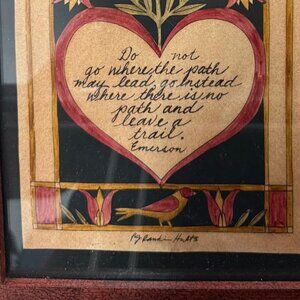 Do not
go where the path
may lead, go instead
where there is no
path and
leave a
trail.
Emerson